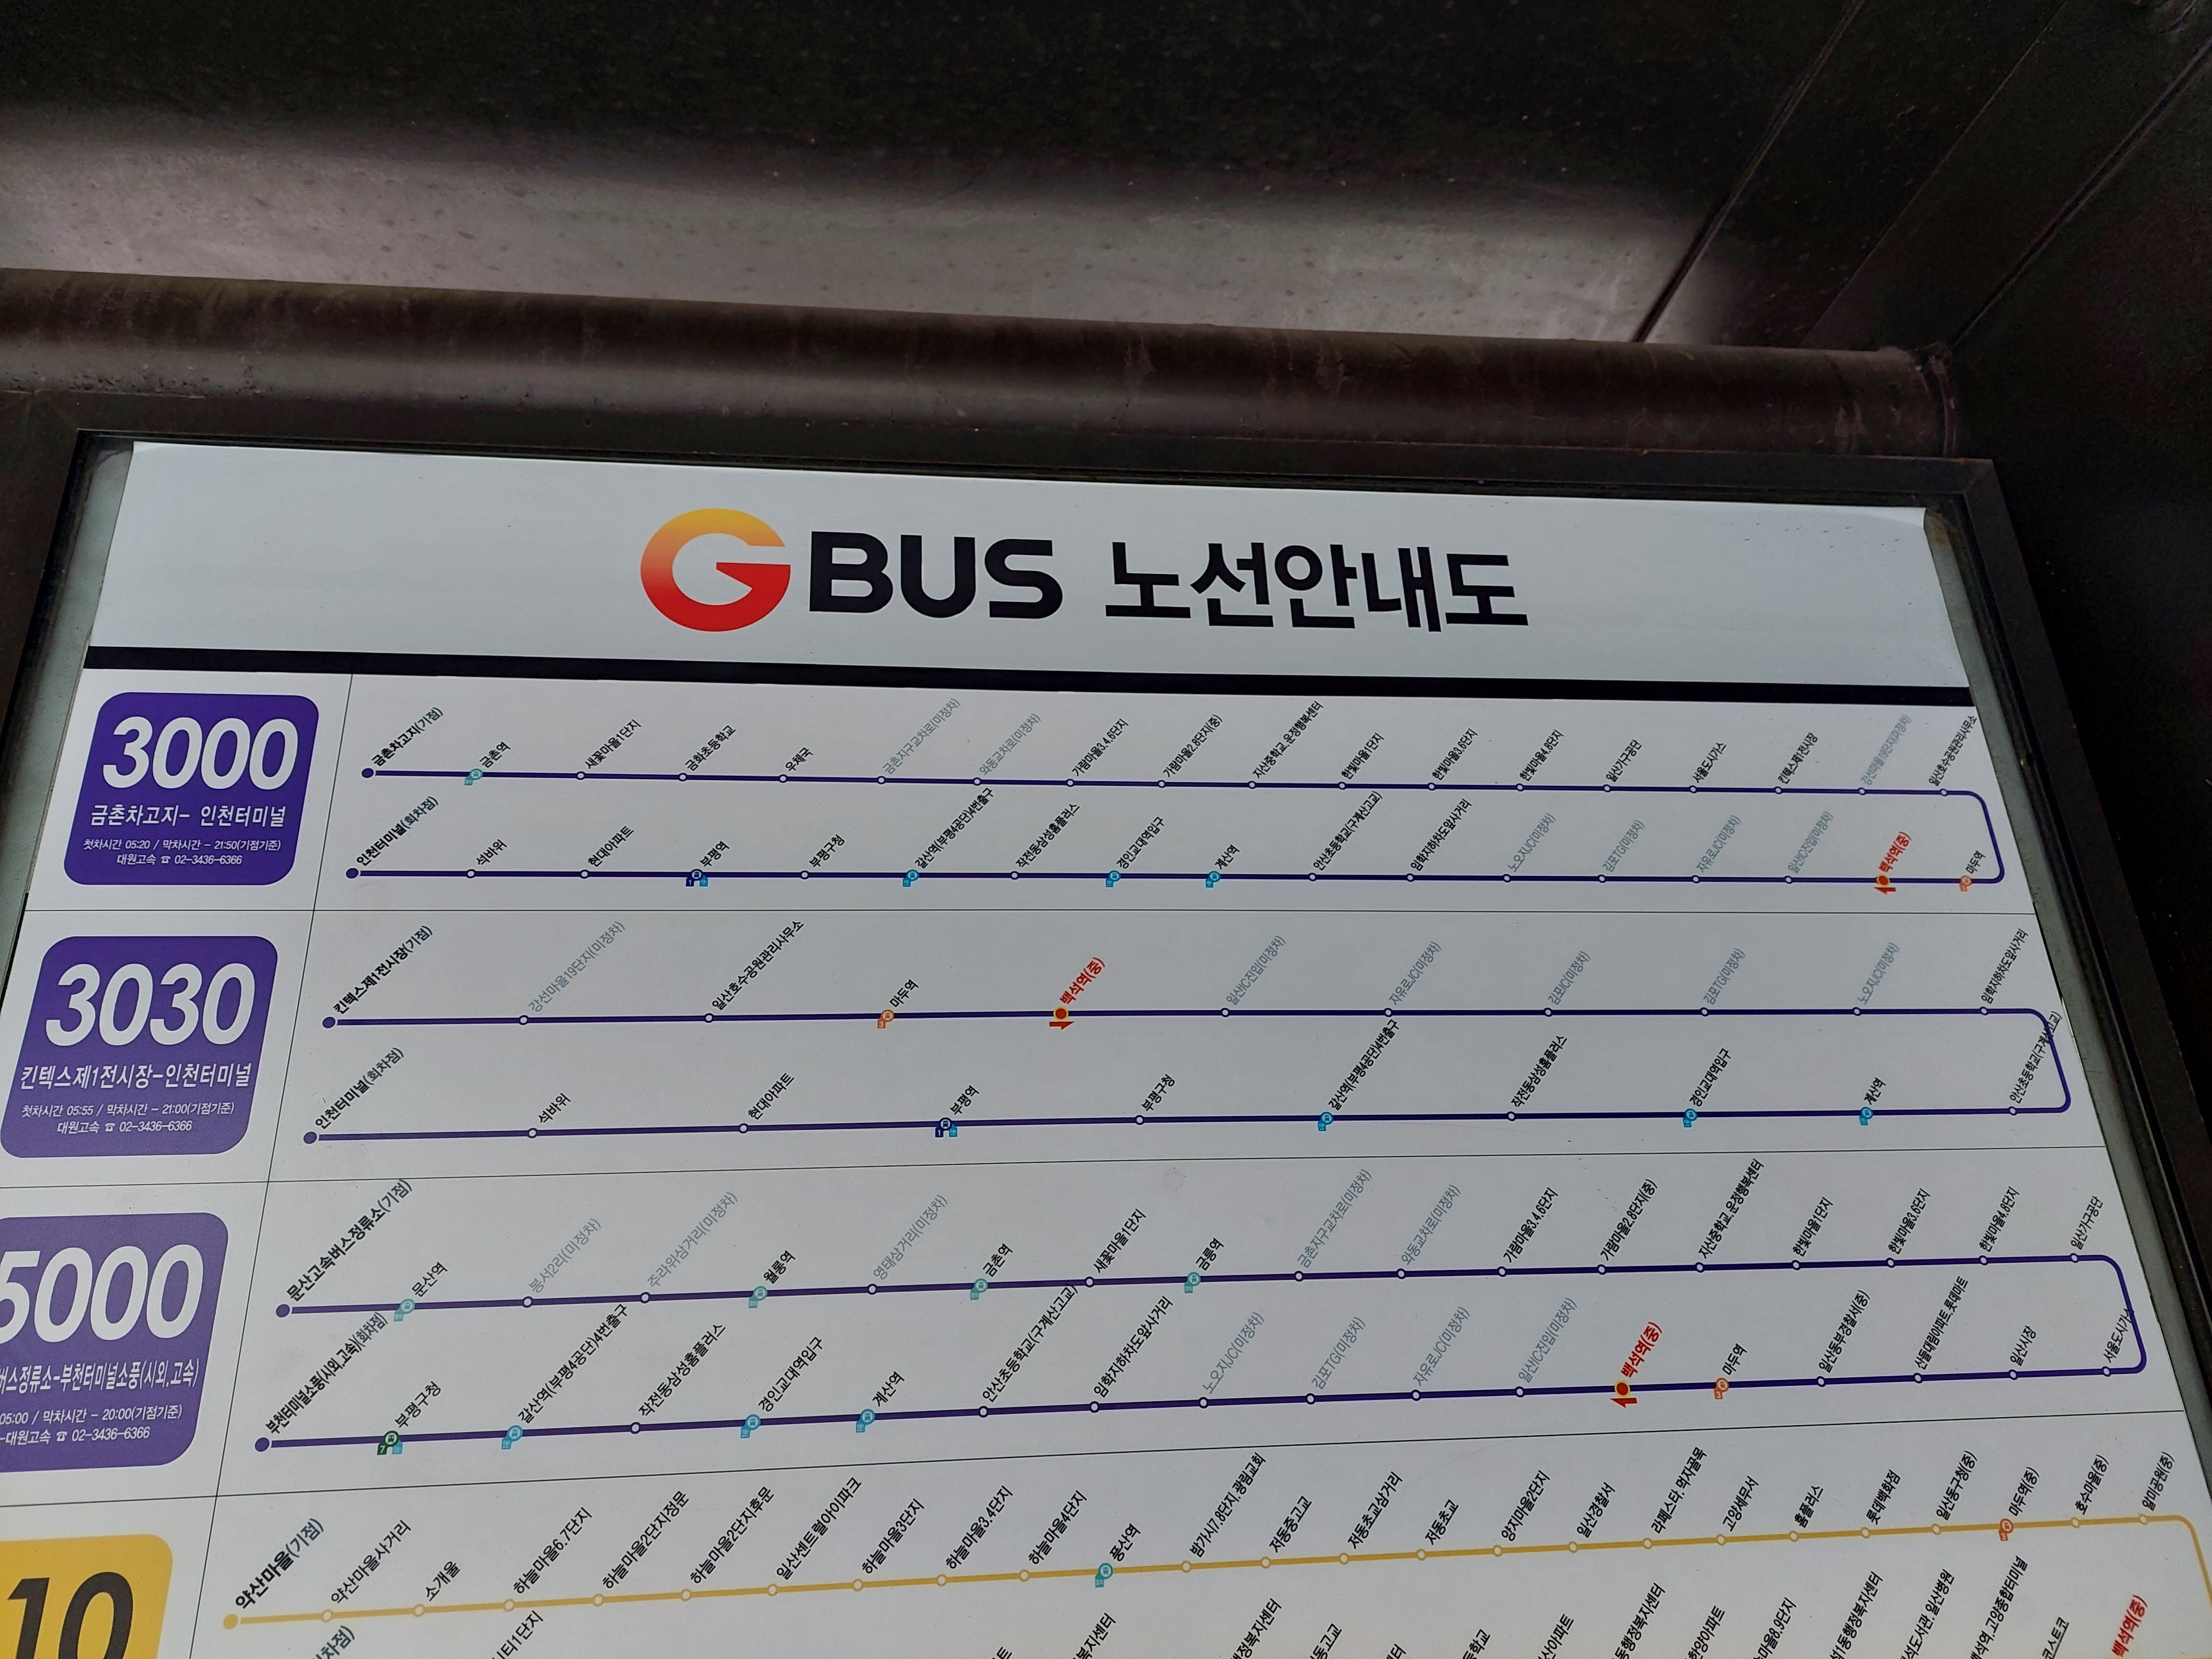 G BUS 노선안내도
3000
금촌차고지- 인천터미널
첫차시간 05:20 / 막차시간 - 21:50(기점기준)
대원고속 ☎ 02-3436-6366
금촌차고지(기점)
금촌역
새꽃마을1단지
금화초등학교
우체국
금촌지구교차로(미정차)
와동교차로(미정차)
가람마을3.4.6단지
가람마을2.8단지(중)
지산중학교.운정행복센터
한빛마을1단지
한빛마을3.6단지
한빛마을4.8단지
일산가구공단
서울도시가스
킨텍스제1전시장
강선마을19단지(미정차)
일산호수공원관리사무소
인천터미널(회차점)
석바위
현대아파트
부평역
부평구청
갈산역(부평4공단)4번출구
작전동삼성홈플러스
경인교대역입구
계산역
안산초등학교(구계산고교)
임학지하차도앞사거리
노오지JC(미정차)
김포TG(미정차)
자유로JC(미정차)
일산IC진입(미정차)
백석역(중)
마두역
3030
킨텍스제1전시장-인천터미널
첫차시간 05:55 / 막차시간 - 21:00(기점기준)
대원고속 ☎ 02-3436-6366
킨텍스제1전시장(기점)
강선마을19단지(미정차)
일산호수공원관리사무소
마두역
백석역(중)
일산IC진입(미정차)
자유로JC(미정차)
김포IC(미정차)
김포TG(미정차)
노오지JC(미정차)
임학지하차도앞사거리
인천터미널(회차점)
석바위
현대아파트
부평역
부평구청
갈산역(부평4공단)4번출구
작전동삼성홈플러스
경인교대역입구
계산역
안산초등학교(구계산고교)
5000
버스정류소-부천터미널소풍(시외,고속)
05:00 / 막차시간 - 20:00(기점기준)
대원고속 ☎ 02-3436-6366
문산고속버스정류소(기점)
문산역
봉서2리(미정차)
주라위삼거리(미정차)
월롱역
영태삼거리(미정차)
금촌역
새꽃마을1단지
금릉역
금촌지구교차로(미정차)
와동교차로(미정차)
가람마을3.4.6단지
가람마을2.8단지(중)
지산중학교.운정행복센터
한빛마을1단지
한빛마을3.6단지
한빛마을4.8단지
일산가구공단
부천터미널소풍(시외,고속)(회차점)
부평구청
갈산역(부평4공단)4번출구
작전동삼성홈플러스
경인교대역입구
계산역
안산초등학교(구계산고교)
임학지하차도앞사거리
노오지JC(미정차)
김포TG(미정차)
자유로JC(미정차)
일산IC진입(미정차)
백석역(중)
마두역
일산동부경찰서(중)
산들대림아파트.롯데마트
일산시장
서울도시가스
10
약산마을(기점)
약산마을사거리
소개울
하늘마을6.7단지
하늘마을2단지정문
하늘마을2단지후문
일산센트럴아이파크
하늘마을3단지
하늘마을3.4단지
하늘마을4단지
풍산역
밤가시7.8단지.광림교회
저동중고교
저동초교삼거리
저동초교
양지마을2단지
일산경찰서
라페스타.먹자골목
고양세무서
홈플러스
롯데백화점
일산동구청(중)
마두역(중)
호수마을(중)
알미공원(중)
차점)
티1단지
복지센터
정복지센터
동고교
등학교
산아파트
동행정복지센터
한양아파트
마을8.9단지
석1동행정복지센터
석도서관.일산병원
백석역.고양종합터미널
코스트코
백석역(중)